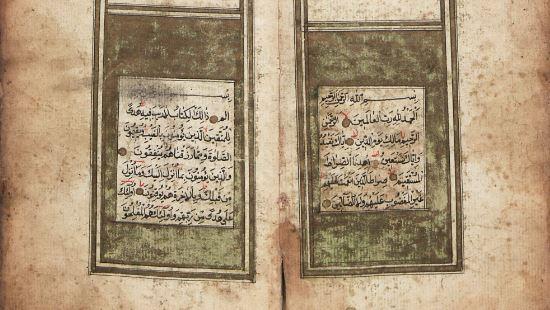 بسم الله الرحمن الرحيم
الحمد لله رب العالمين الرحمن
الرحيم مالك يوم الدين اياك نعبد
واياك نستعين اهدنا الصراط
المستقيم صراط الذين انعمت عليهم
غير المغضوب عليهم ولا الضالين
بسم
الم ذلك الكتاب لا ريب فيه هدى
للمتقين الذين يؤمنون بالغيب ويقيمون
الصلوة ومما رزقناهم ينفقون
والذين يؤمنون بما انزل اليك وما انزل
من قبلك وبالاخرة هم يوقنون اولئك
على هدى من ربهم واولئك هم المفلحون